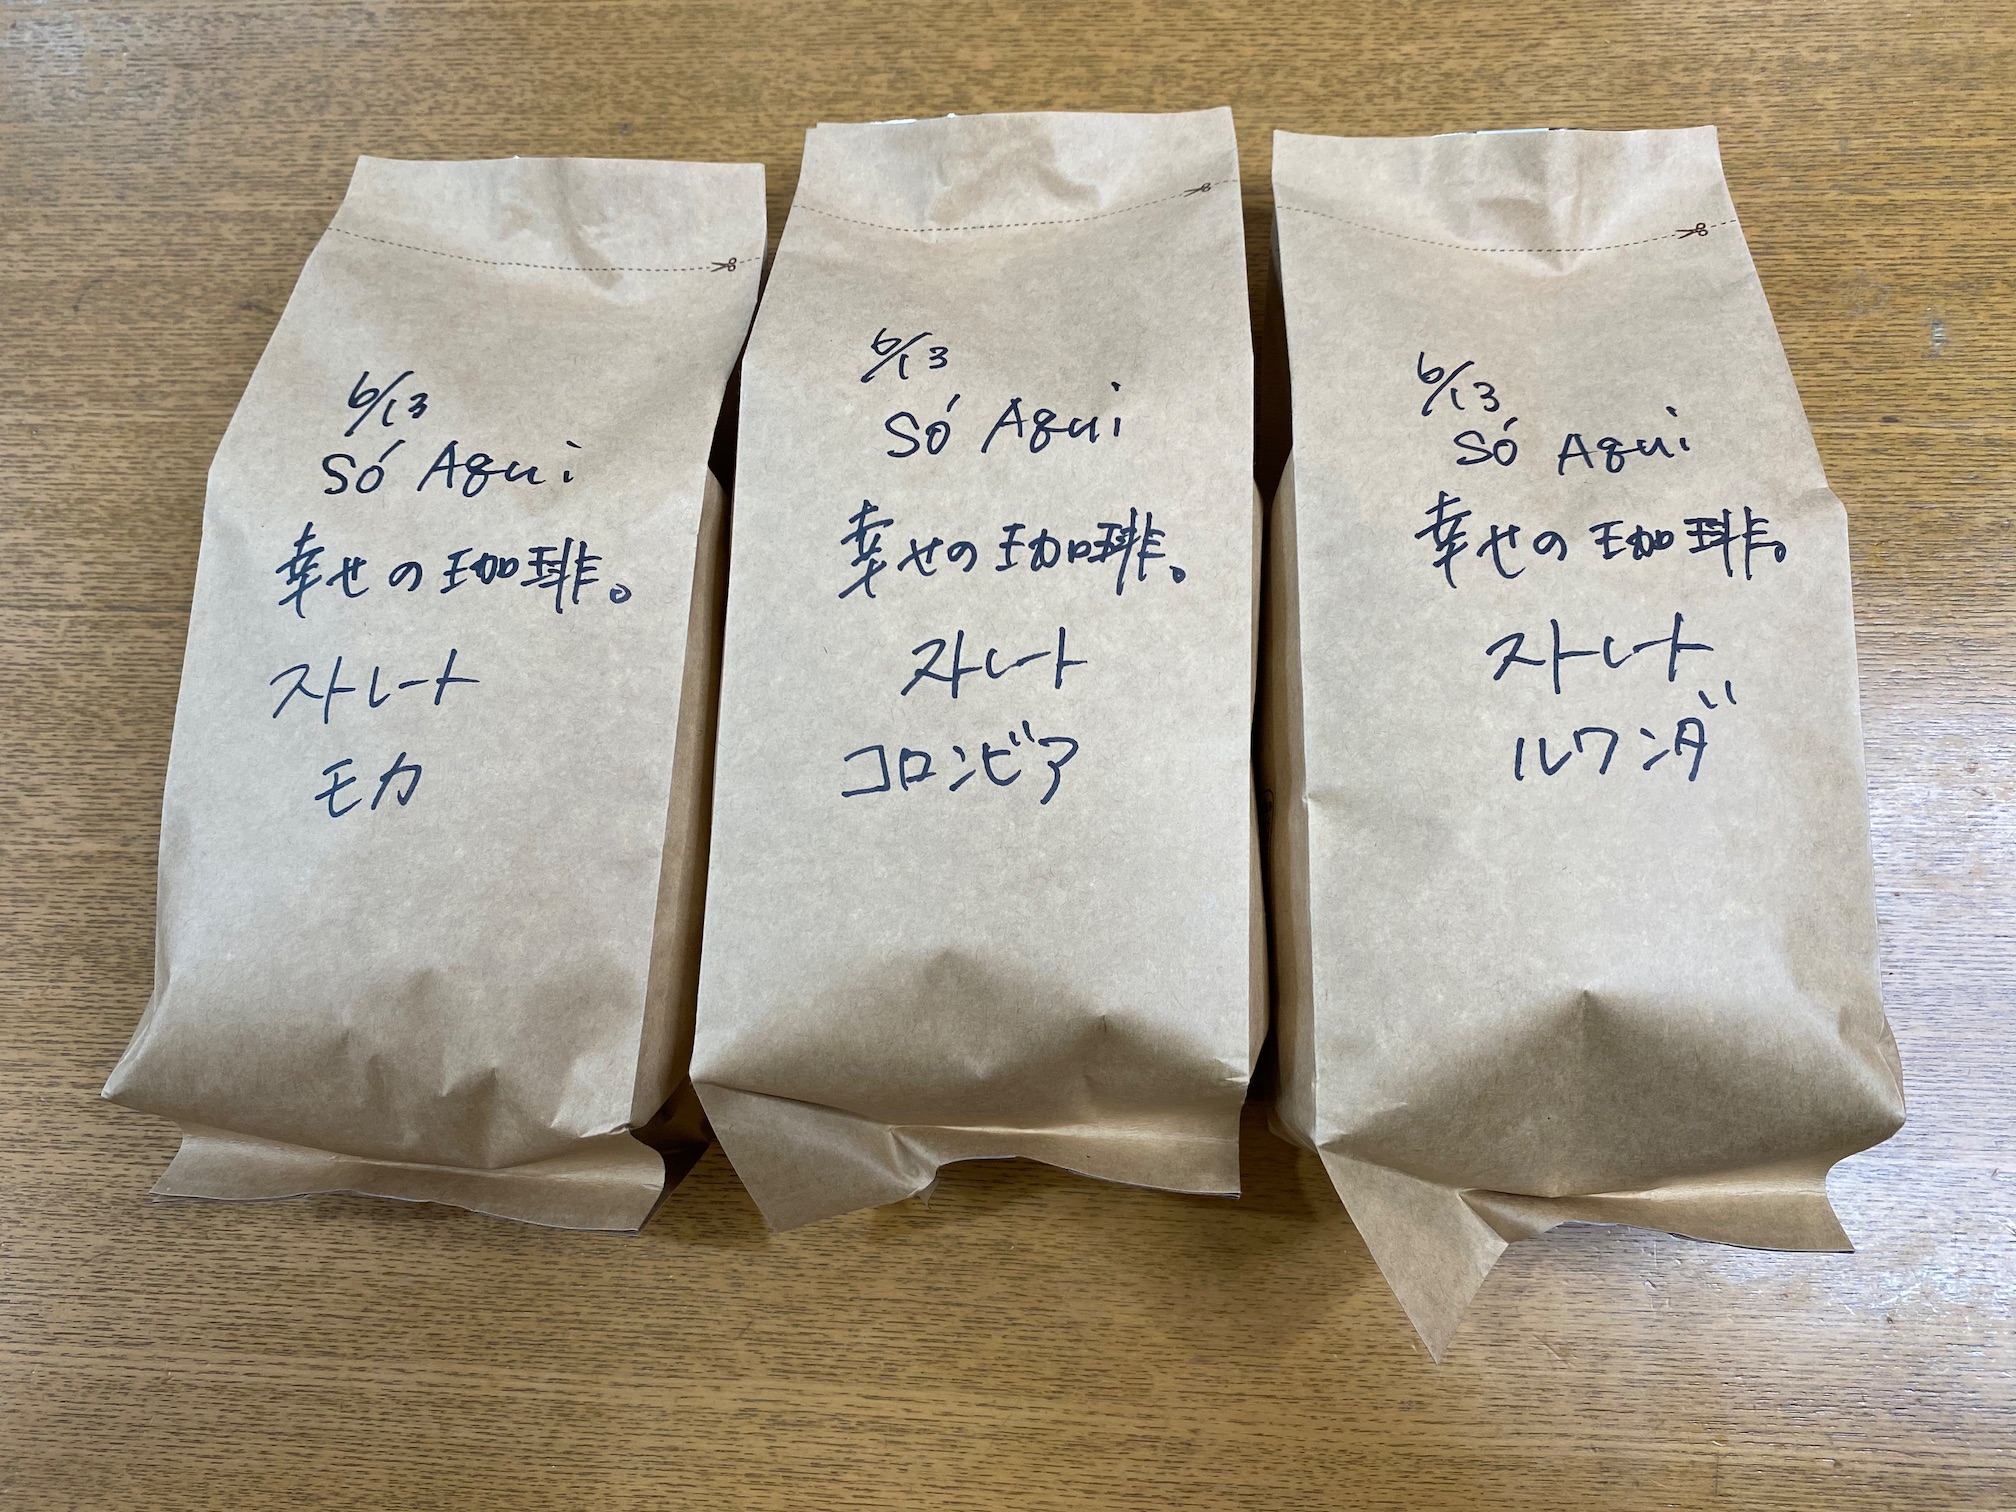 6/13
Só Aqui
幸せの珈琲。
ストレート
モカ
6/13
Só Aqui
幸せの珈琲。
ストレート
コロンビア
6/13
Só Aqui
幸せの珈琲。
ストレート
ルワンダ